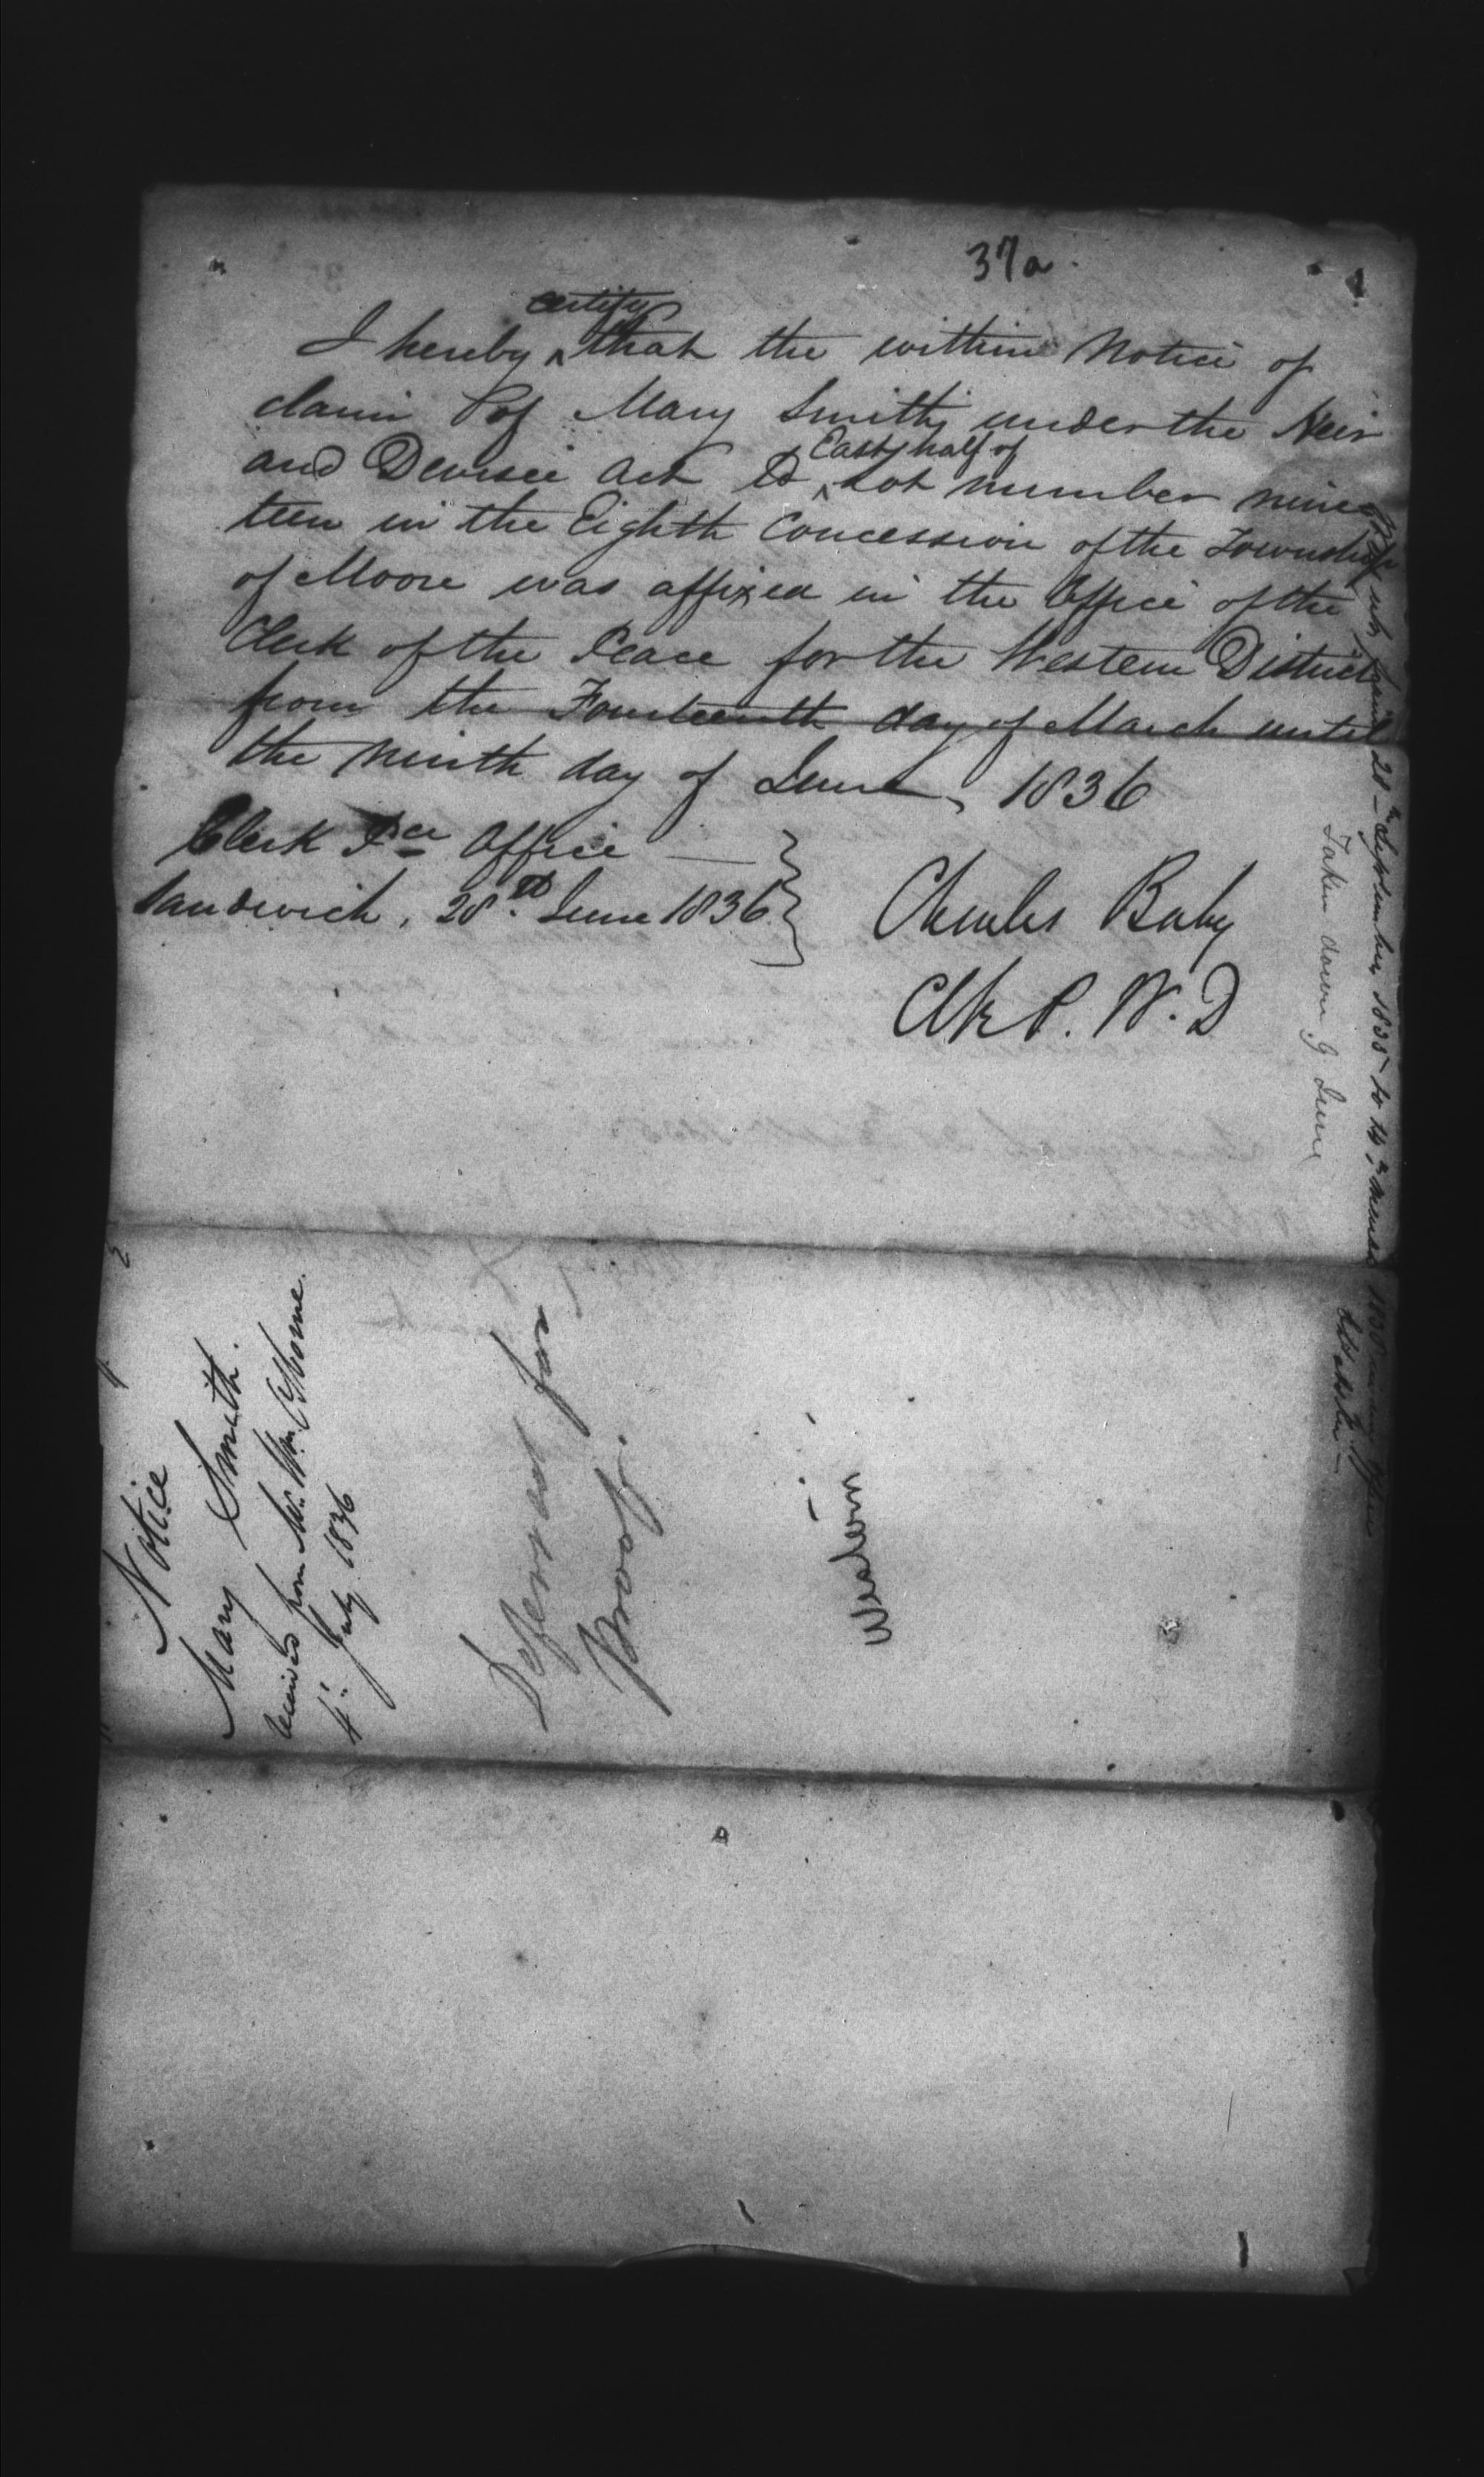 37a.
certify
I hereby ‸ that the within Notice of
claim of Mary Smith, under the Heir
East half of
and Devisee Act to ‸ Lot number nine
teen in the Eighth Concession of the Township
of Moore was affixed in the Office of the
Clerk of the Peace for the Western District
from the Fourteenth day of March until
the ninth day of June, 1836
Clerk Pce Office —
Sandwich, 28th June 1836
Charles Baby
Clk P. W. D
Taken down 9 June
28th September 1835 to 14th March 1836 in my Office
Notice
Mary Smith.
Received from Mr. Wm.
4th July 1836
Deferred for
proof.
Western